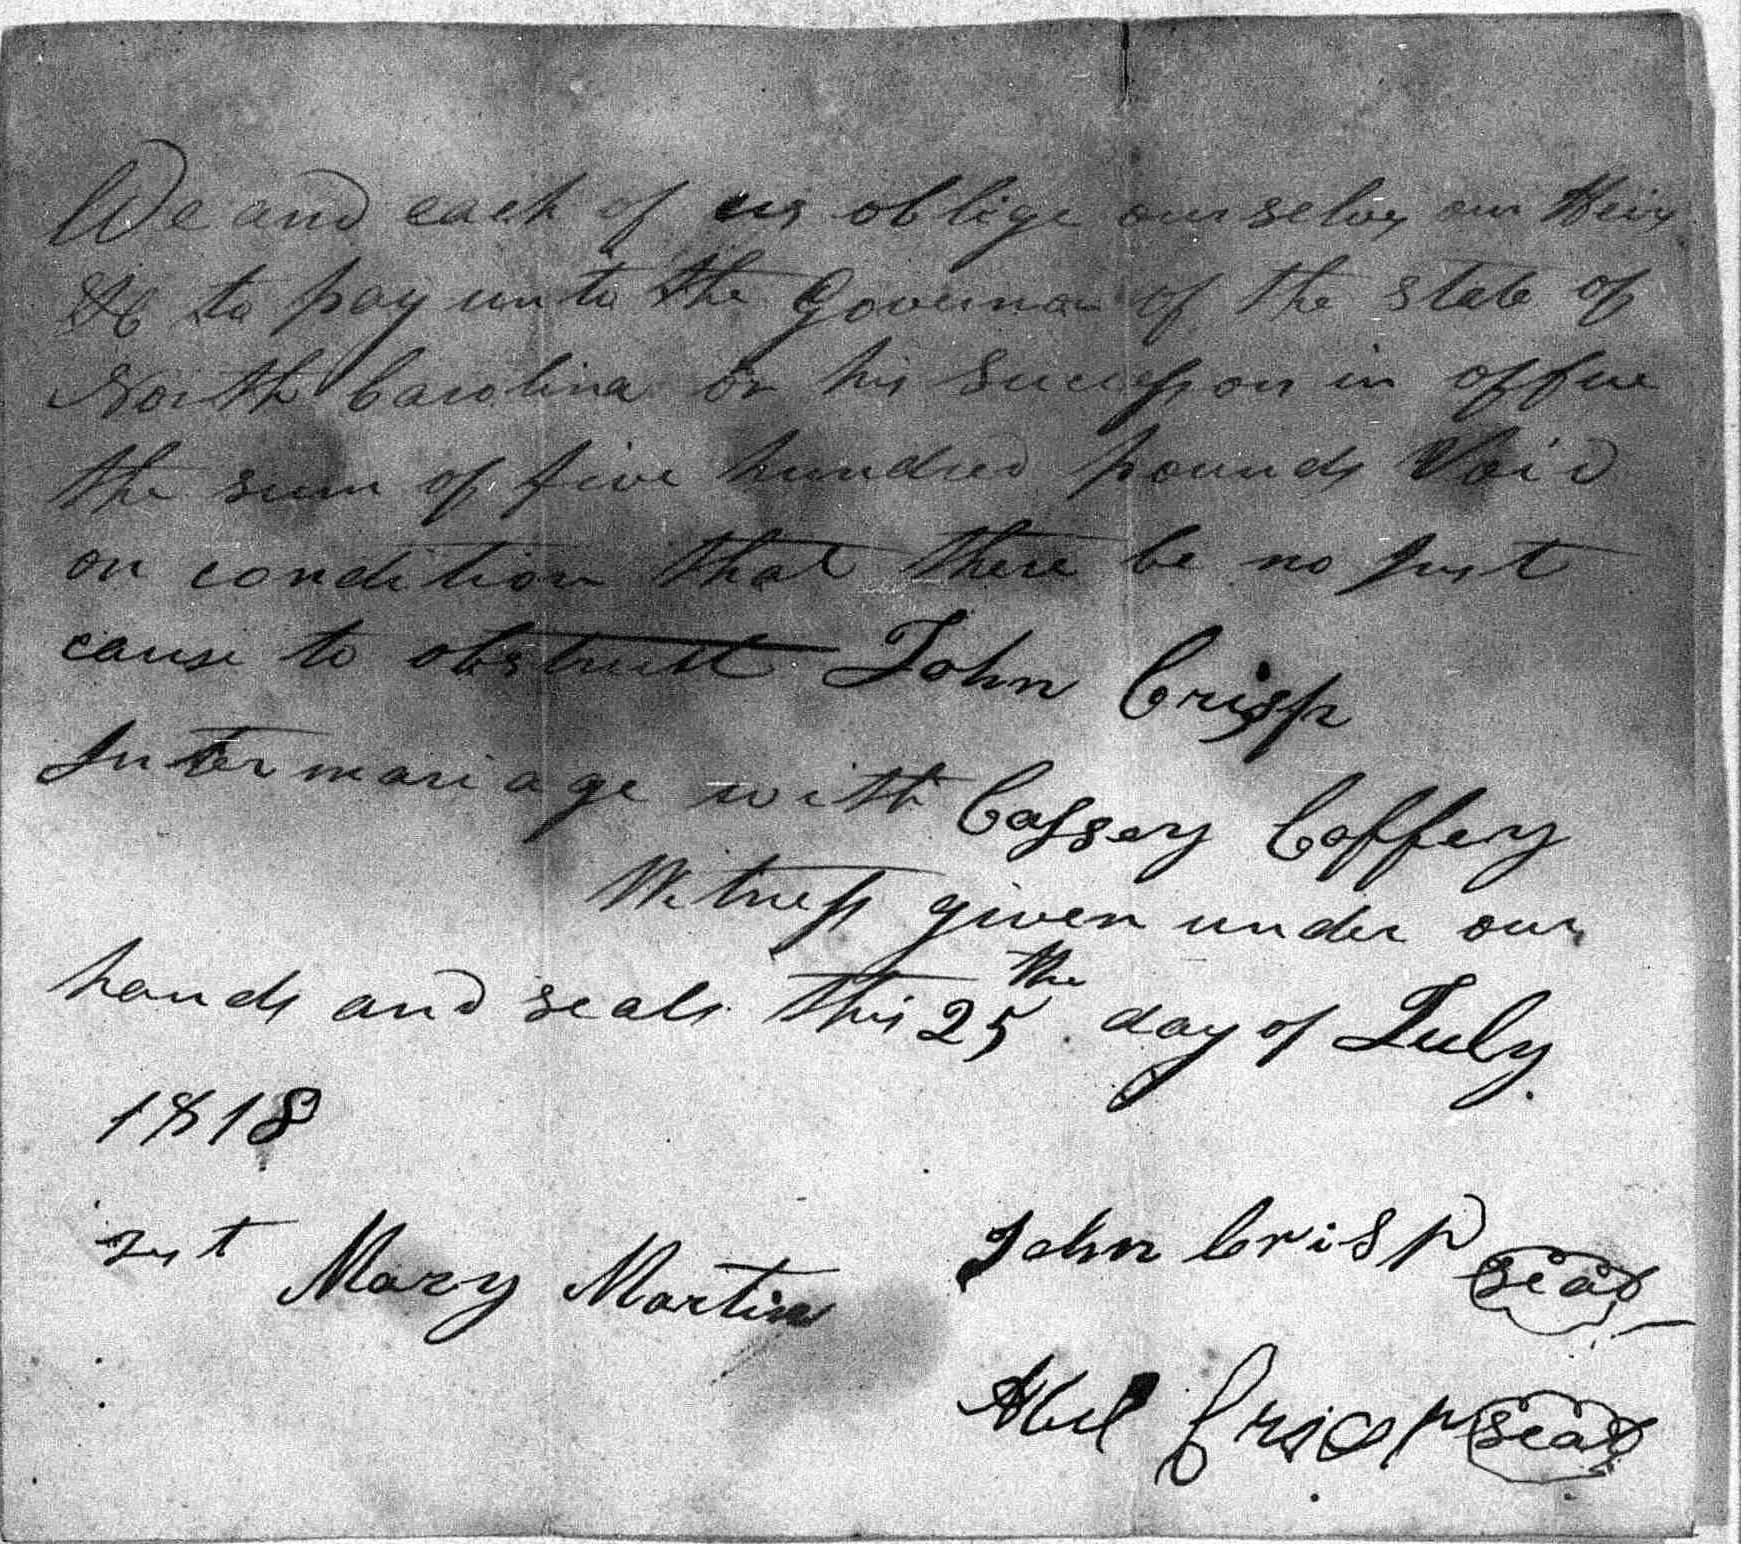 We and each of us oblige ourselves our Heirs
&C to pay unto the Governor of the state of
North Carolina or his Successors in office
the sum of five hundred pounds Void
on condition that there be no Just
cause to obstruct John Crisp
Intermariage with Cassey Coffey
Witness given under our
hands and seals this 25 the day of July.
1818
Mary Martin
John Crisp seal
Abel Crisp seal